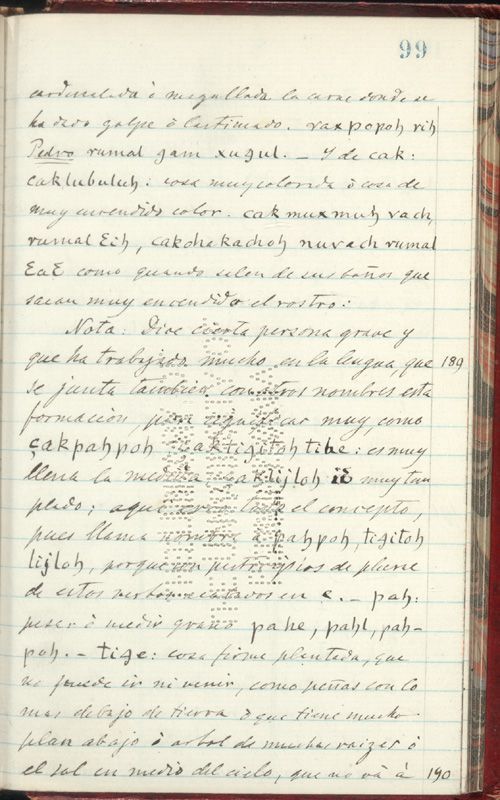 99
cardenalada ò magullada la carne donde se
ha dado golpe ò lastimado. raxpopoh rih
Pedro rumal gam xugul. — Y de cak:
caklubuluh: cosa muy colorida ò cosa de
muy encendido color. cak muxmuh vach,
rumal Eih, cakchakachoh nuvach rumal
EaE como quando salen de sus baños que
sacan muy encendido el rostro:
Nota: Dice cierta persona grave y
que ha trabajado mucho en la lengua que 189
se junta tambien con otros nombres esta
formación, para significar muy, como
çakpahpoh, çaktigitoh tibe: es muy
llena la medida: çaklijloh is muy tem
plado; aqui todo el concepto,
pues llama nombre à pahpoh, tigitoh
lijloh, porque son participios de plural
de estos verbos acabados en e. — pah:
pesar ò medir grano pahe, pahl, pah-
poh. — tige: cosa firme plantada, que
no puede ir ni venir, como peñas con lo
mas debajo de tierra ò que tiene mucho
plan abajo ò arbol de muchas raizes ò
el sol en medio del cielo, que no và à 190